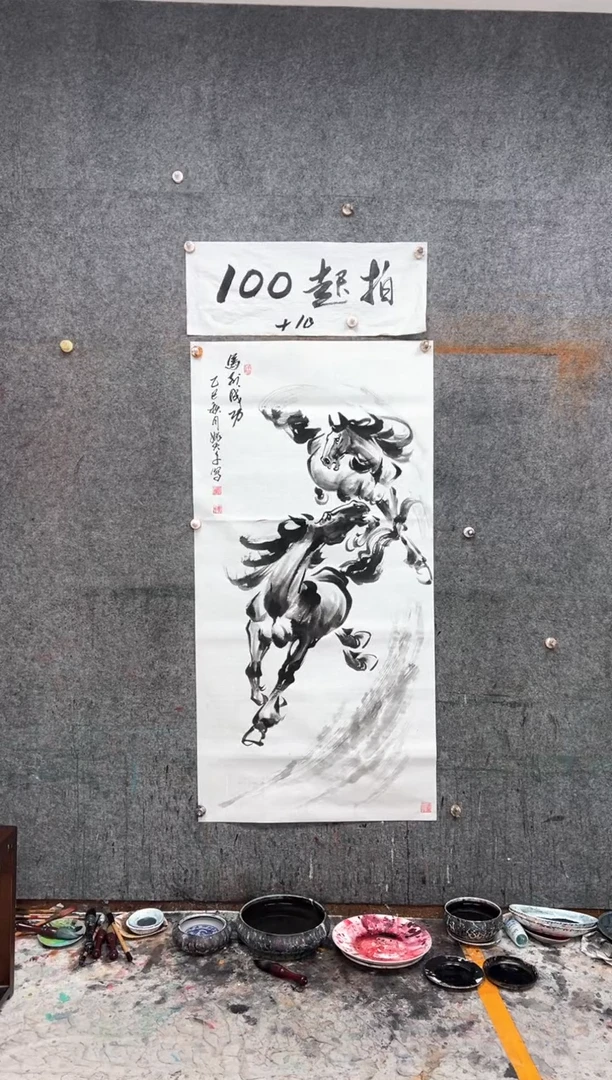 100起拍
+10
馬到成功
乙巳秋月
写